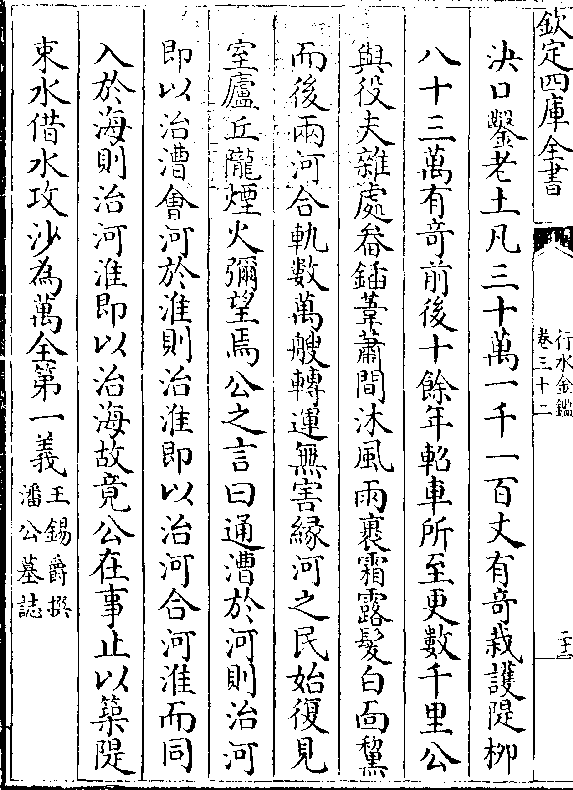 欽定四庫全書
行水金鑑
卷三十二
二十三
決口鑿老土凡三十萬一千一百丈有奇栽護隄柳
八十三萬有奇前後十餘年軺車所至更數千里公
與役夫雜處畚鍤葦蕭間沐風雨裹霜露髮白面黧
而後兩河合軌數萬艘轉運無害緣河之民始復見
室廬丘隴煙火彌望焉公之言曰通漕於河則治河
即以治漕會河於淮則治淮即以治河合河淮而同
入於海則治河淮即以治海故竟公在事止以築隄
束水借水攻沙為萬全第一義王錫爵撰
潘公墓誌